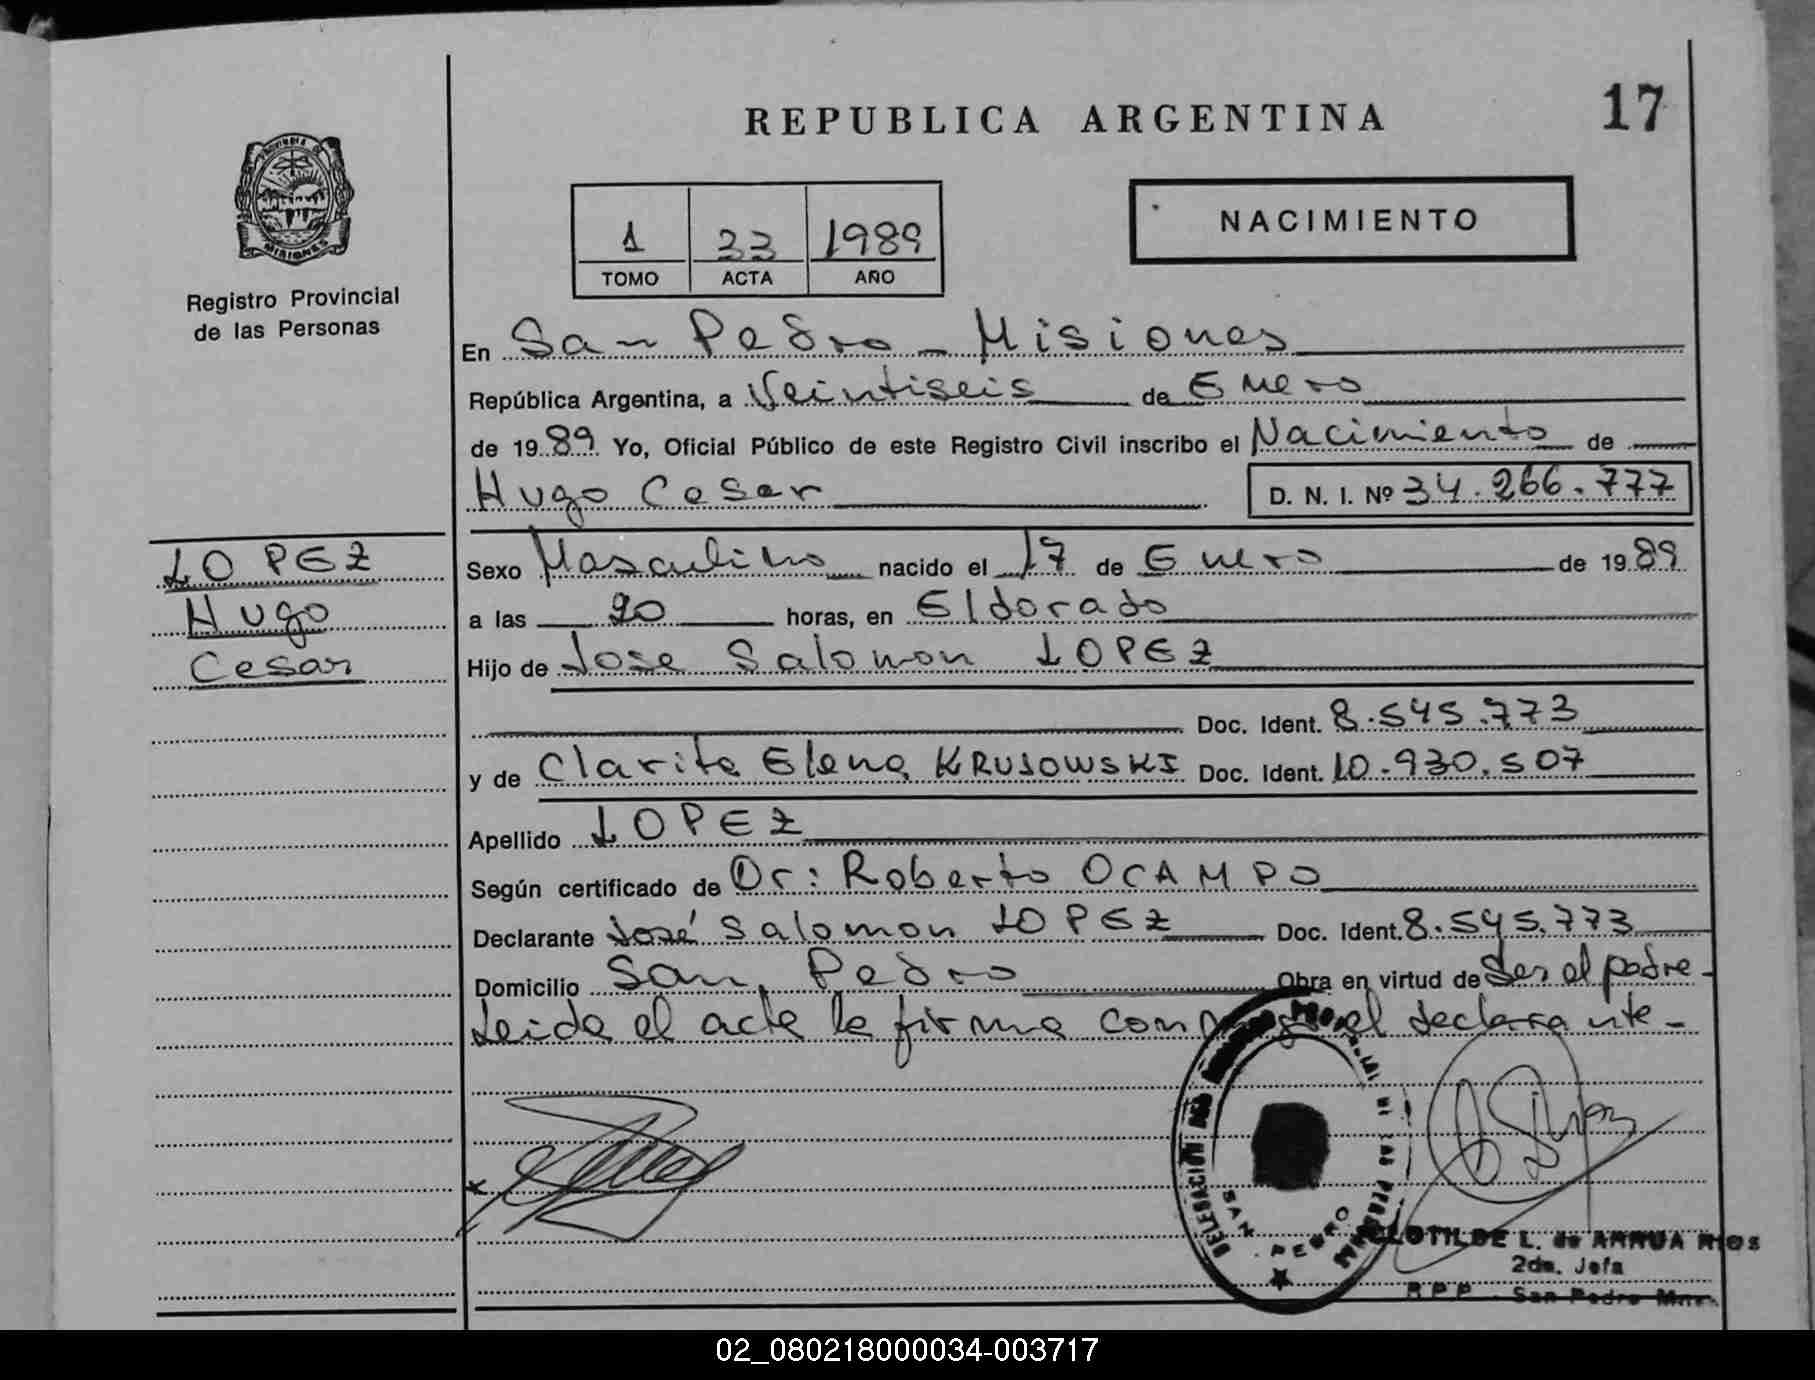 REPUBLICA ARGENTINA
17
PROVINCIA DE
MISIONES
Registro Provincial
de las Personas
1 33 1989
TOMO ACTA AÑO
NACIMIENTO
En San Pedro - Misiones
República Argentina, a Veintiseis de Enero
de 1989 Yo, Oficial Público de este Registro Civil inscribo el Nacimiento de
Hugo Cesar D. N. I. Nº 34.266.777
LOPEZ
Hugo
Cesar
Sexo Masculino nacido el 17 de Enero de 1989
a las 20 horas, en Eldorado
Hijo de Jose Salomon LOPEZ
Doc. Ident. 8.545.773
y de Clarita Elena KRUSOWSKI Doc. Ident. 10.930.507
Apellido LOPEZ
Según certificado de Dr: Roberto OCAMPO
Declarante José Salomon LOPEZ Doc. Ident. 8.545.773
Domicilio San Pedro Obra en virtud de Ser el padre-
Leida el acta la firma conmigo el declarante-
DELEGACION DEL
LAS PERSONAS
SAN PEDRO
CLOTILDE L. de ARRUA RIOS
2da. Jefa
R.P.P. San Pedro Mnes.
02_080218000034-003717